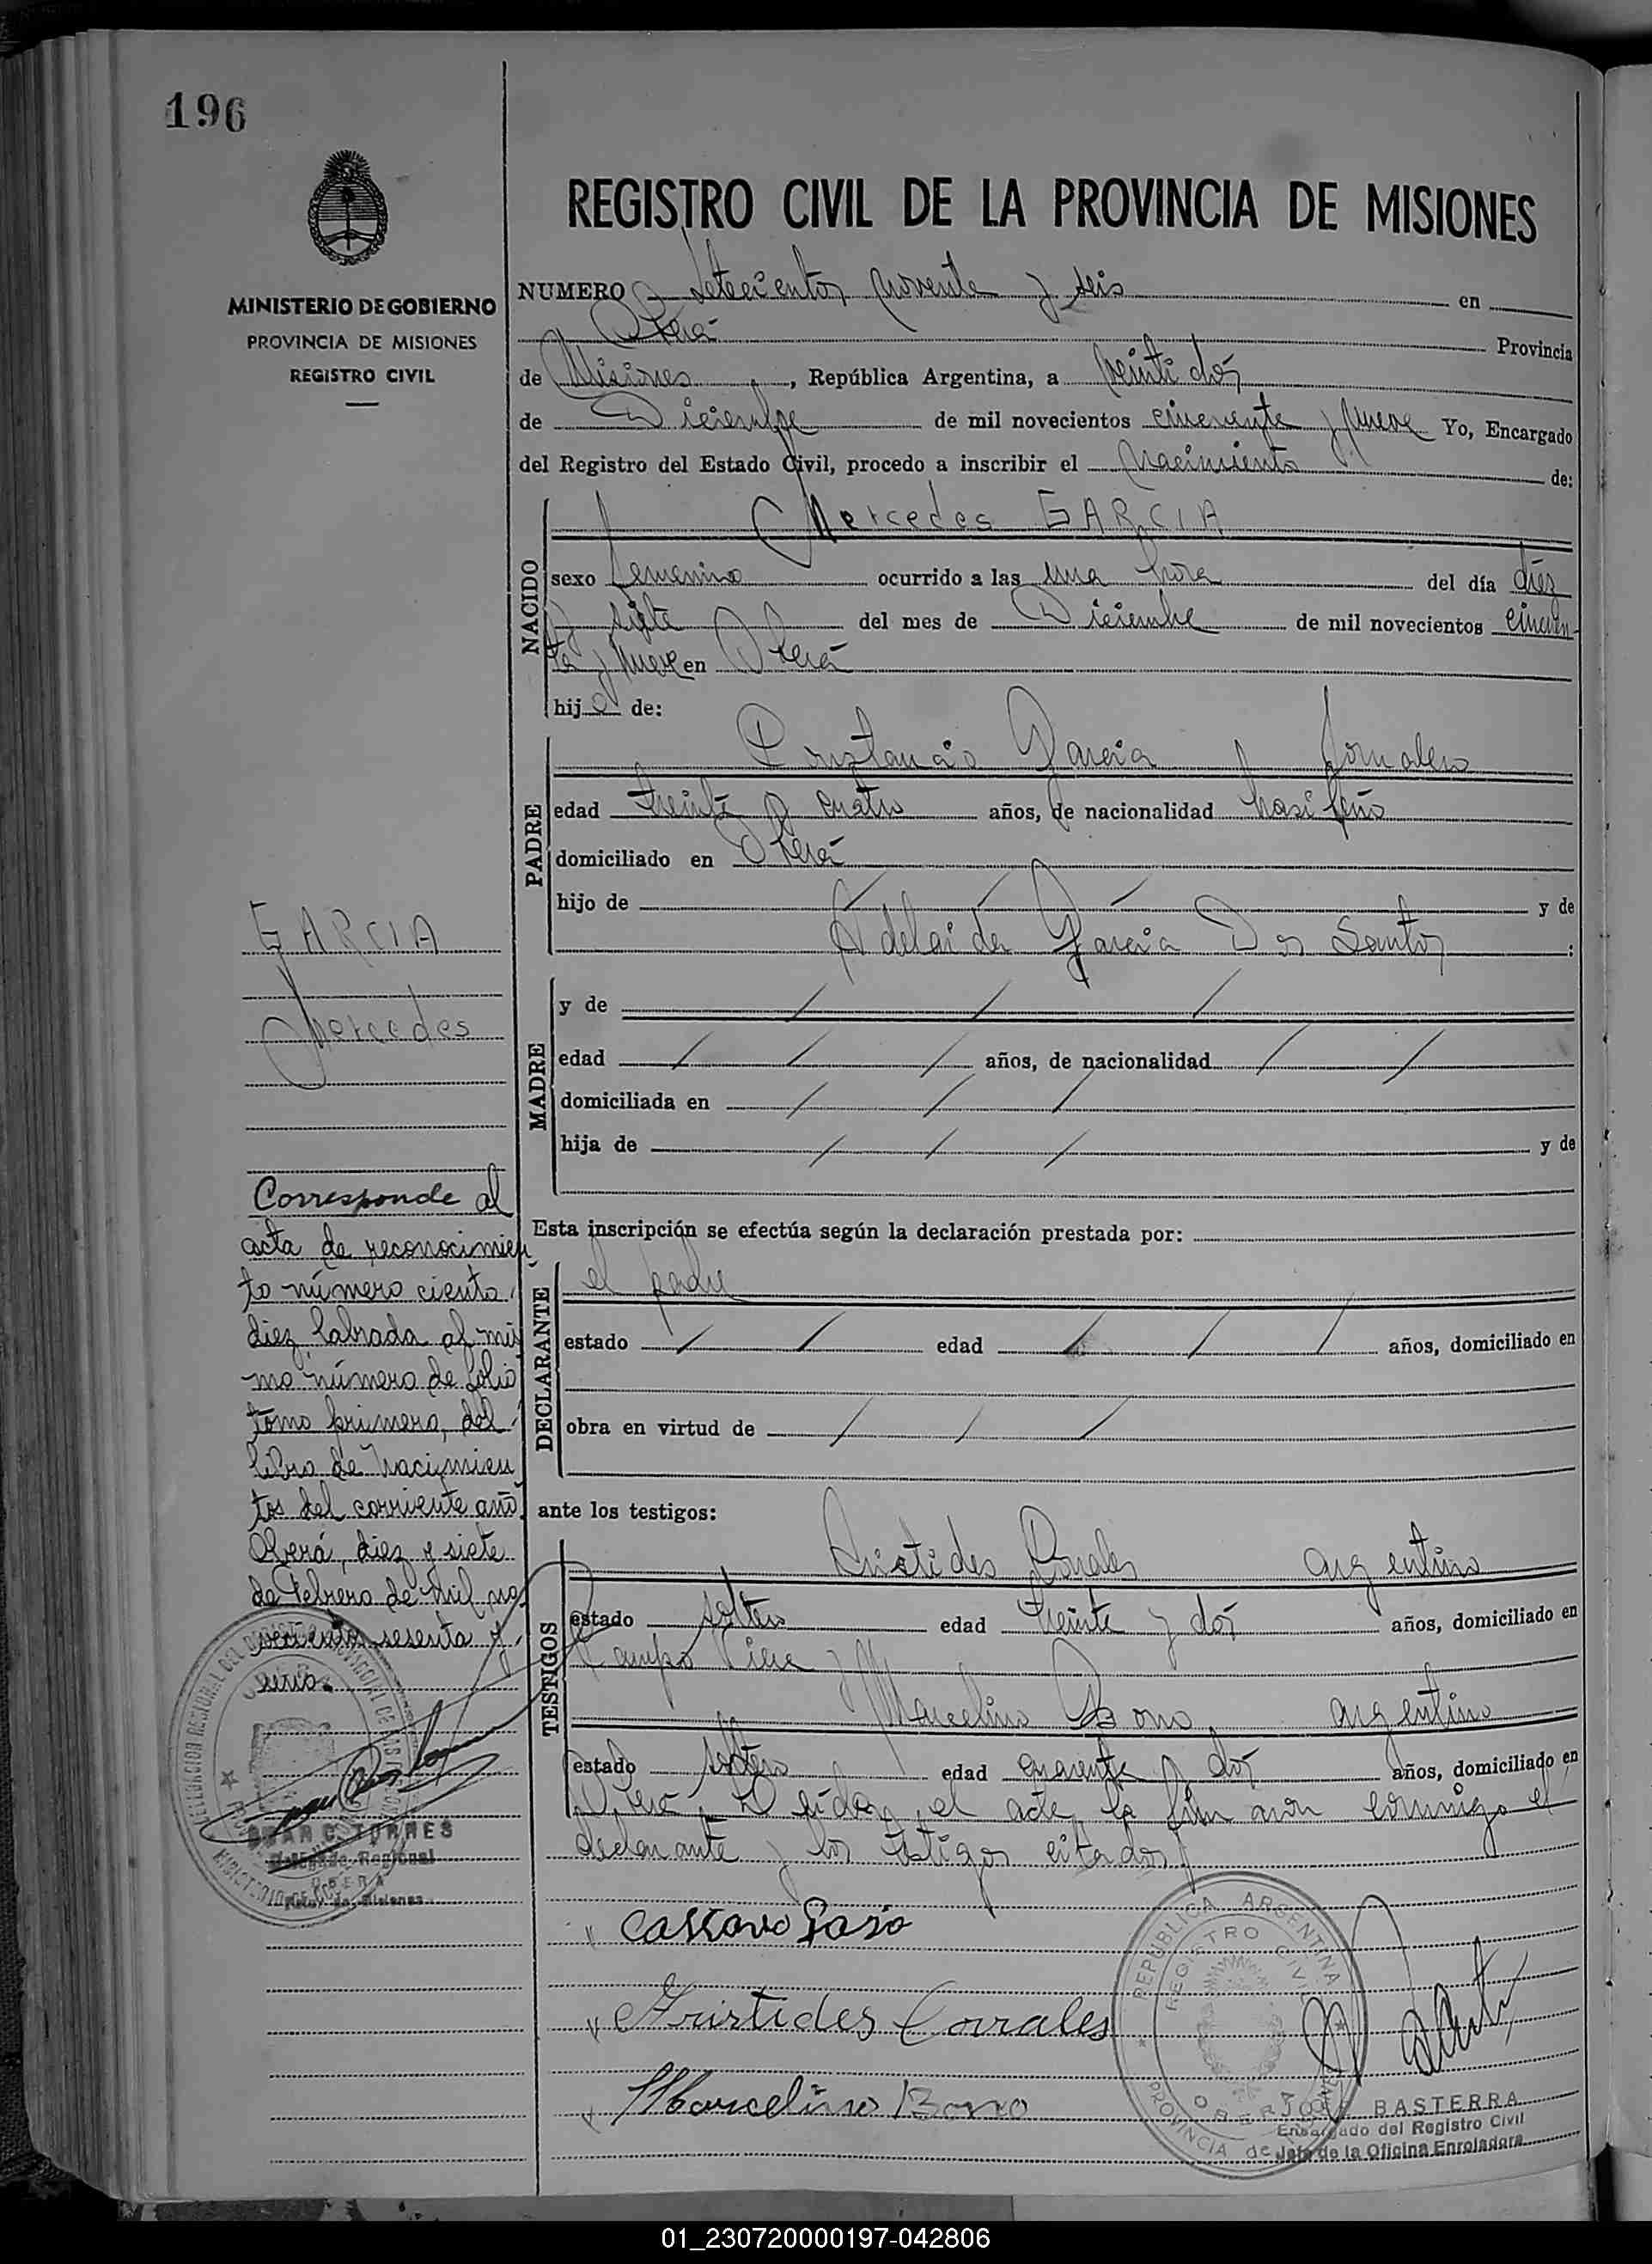 196
MINISTERIO DE GOBIERNO
PROVINCIA DE MISIONES
REGISTRO CIVIL
REGISTRO CIVIL DE LA PROVINCIA DE MISIONES
NUMERO setecientos noventa y seis en
Oberá Provincia
de Misiones, República Argentina, a veinti dós
de Diciembre de mil novecientos cincuenta y nueve Yo, Encargado
del Registro del Estado Civil, procedo a inscribir el nacimiento de:
NACIDO
Mercedes GARCIA
sexo femenino ocurrido a las una hora del día diez
y siete del mes de Diciembre de mil novecientos cincuen
ta y nueve en Oberá
hija de:
PADRE
Constancio Garcia Jornalero
edad treinta y cuatro años, de nacionalidad brasileño
domiciliado en Oberá
hijo de y de
Adelaida Garcia Dos Santos ;
MADRE
y de
edad años, de nacionalidad
domiciliada en
hija de y de
Esta inscripción se efectúa según la declaración prestada por:
DECLARANTE
el padre
estado edad años, domiciliado en
obra en virtud de
ante los testigos:
TESTIGOS
Aristides Corrales argentino
estado soltero edad treinta y dós años, domiciliado en
Campo Viera y Marcelino Bono, argentino
estado soltero edad cuarenta y dós años, domiciliado en
Oberá. Leída el acta la firmaron conmigo el
declarante y los testigos citados
Aristides Corrales
Marcelino Bono
REPUBLICA ARGENTINA
REGISTRO CIVIL
OBERA
PROVINCIA de MISIONES
JOSE BASTERRA
Encargado del Registro Civil
Jefe de la Oficina Enroladora
GARCIA
Mercedes
Corresponde al
acta de reconocimien
to número ciento
diez labrada al mis
mo número de folio
tomo primero, del
libro de Nacimien
tos del corriente año
Oberá, diez y siete
de Febrero de mil no
vecientos sesenta y
uno.
JUAN C. TORRES
Delegado Regional
OBERA
Prov. de Misiones
01_230720000197-042806